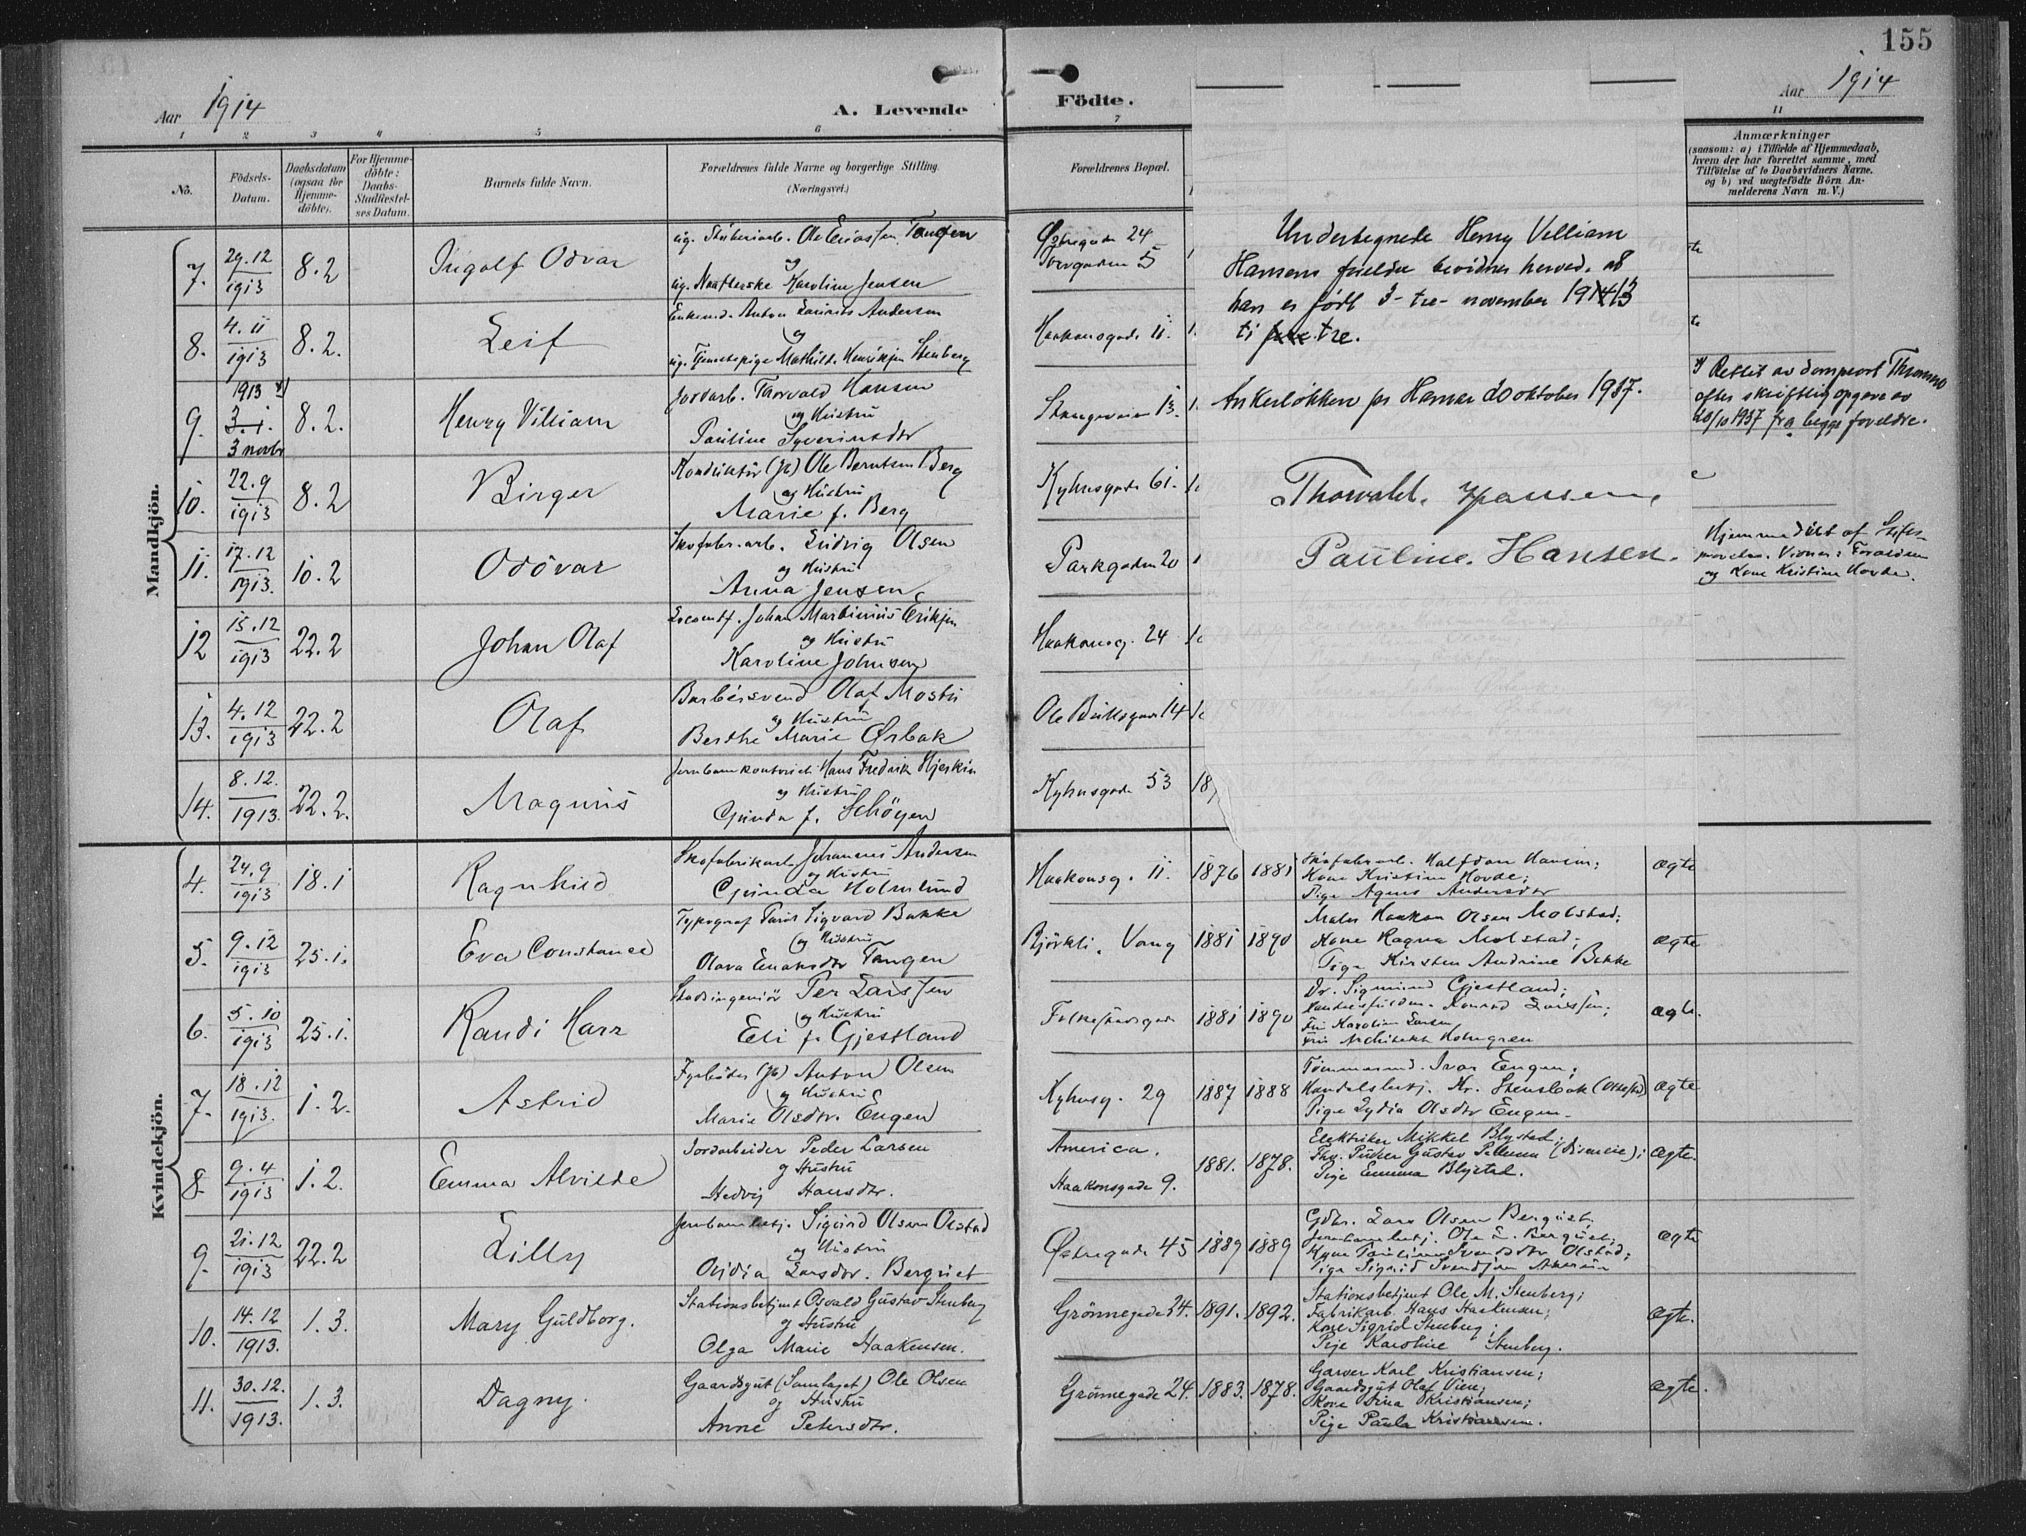 155
Aar 1914
A. Levende
Födte.
Aar 1914
1 2 3 4 5 6 7 11
No.
Födsels-Datum.
Daabsdatum (ogsaa for Hjemme-döbte).
For Hjemme-döbte: Daabs-Stadfæstel-ses Datum.
Barnets fulde Navn.
Forældrenes fulde Navne og borgerlige Stilling.
(Næringsvei.)
Forældrenes Bopæl.
Anmærkninger
(saasom: a) i Tilfælde af Hjemmedaab,
hvem der har forrettet samme, med
Tilföielse af to Daabsvidners Navne.
og b) ved uægtefödte Börn An-
melderens Navn m. V.)
Mandkjön.
7. 29.12 1913 8.2 Ingolf Odvar
Ole Tangen
og
Karoline Jensen
Østregade 24
Torvgaden 5
8. 4.11 1913 8.2. Leif
Anton Andersen
og
Mathilde Stenberg
Haakonsgade 11.
9. 1913 3.1. 3 novbr 8.2. Henry Villiam
Jordarb. Thorvald Hansen
og Hustru
Pauline Syverinsdtr
Stangeveien 13.
10. 22.9 1913 8.2 Birger
Konduktör (jb) Ole Berntsen Berg
og Hustru
Marie f. Berg
Kyhnsgade 61.
11. 17.12 1913. 10.2 Oddvar
Skofabr.arb. Ludvig Olsen
og Hustru
Anna Jensen
Parkgaden 20
12 15.12 1913 22.2 Johan Olaf
Johan Martinius Eriksen
og Hustru
Karoline Johnsen
Haakonsg. 24
13. 4.12 1913 22.2 Olaf
Barbersvend Olaf Mostu
og Hustru
Berthe Marie Ørbak
14
14. 8.12. 1913. 22.2. Magnus
Hans Fredrik Hjerkin
og Hustru
Gunda f. Schöyen
Kyhnsgade 53
Undertegnede Henry Villiam
Hansens foreldre bevidner herved, at
han er født 3 - tre - november 1913
ti tre.
Ankerløkken pr Hamar 20 oktober 1937.
Thorvald. Hansen.
Pauline. Hansen.
Rettet av domprost
efter skriftlig opgave av
20/10 1937 fra begge foreldre.
Hjemmedöbt af
og Kone Kristine Hovde.
Kvindekjön.
4. 24.9 1913 18.1 Ragnhild
Skofabrikarb. Johannes Andersen
og Hustru
Gunda Holmlund
Haakonsg. 11. 1876 1881
Skofabr.arb. Halfdan Hansen;
Kone Kristine Hovde;
Pige Agnes Andersdtr
ægte
5. 9.12 1913 25.1. Eva Constance
Typograf Sigvard Bakke
og Hustru
Olava Tangen
Björkli. Vang 1881 1890
Maler Haakon Olsen Molstad;
Kone Ragna Molstad;
Pige Kirsten Andrine Bakke
ægte
6. 5.10 1913 25.1. Randi Harr
Stadsingeniör Per Larssen
og Hustru
Eli f. Gjestland
Folkestadsgade 1881 1890
Dr. Sigmund Gjestland;
Konrad Larssen;
Fru Karoline Larsen
Fru Architekt Holmgren
ægte.
7. 18.12 1913. 1.2. Astrid
Fyrböter (jb) Anton Olsen
og Hustru
Marie Olsdtr. Engen
Kyhnsg. 29 1887 1888
Tömmermd. Ivar Engen;
Handelsbetj. Kr. Stensbak
Pige Lydia Olsdtr Engen.
ægte
8. 9.4 1913 1.2. Emma Alvilde
Jordarbeider Peder Larsen
og Hustru
Hedvig Hansdtr.
America.
Haakonsgade 9. 1881. 1878.
Elektriker Mikkel Blystad;
Gustav
Pige Emma Blystad.
ægte.
9. 21.12 1913 22.2 Lilly
Jernbanebetj. Sigurd Olsen Olstad
og Hustru
Ovidia Larsdtr. Berquist
Østregade 45 1889 1889
Gdbr. Lars Olsen Berquist;
Jernbanebetj. Ole L. Berquist;
Olstad;
Pige Sigrid
ægte
10. 14.12 1913. 1.3. Mary Guldborg.
Stationsbetjent Osvald Gustav Stenberg
og Hustru
Olga Marie Haakensen.
Grönnegade 24. 1891. 1892.
Stationsbetjent Ole M. Stenberg;
Fabrikarb. Hans Haakensen;
Kone Sigrid Stenberg;
Pige Karoline Stenberg.
ægte.
11. 30.12. 1913. 1.3. Dagny.
Gaardsgut (Samlaget) Ole Olsen
og Hustru
Anne Petersdtr.
Grönnegade 24. 1883. 1878.
Garver Karl Kristiansen;
Gaardsgut Olaf Vien;
Kone Dina Kristiansen;
Pige Paula Kristiansen.
ægte.